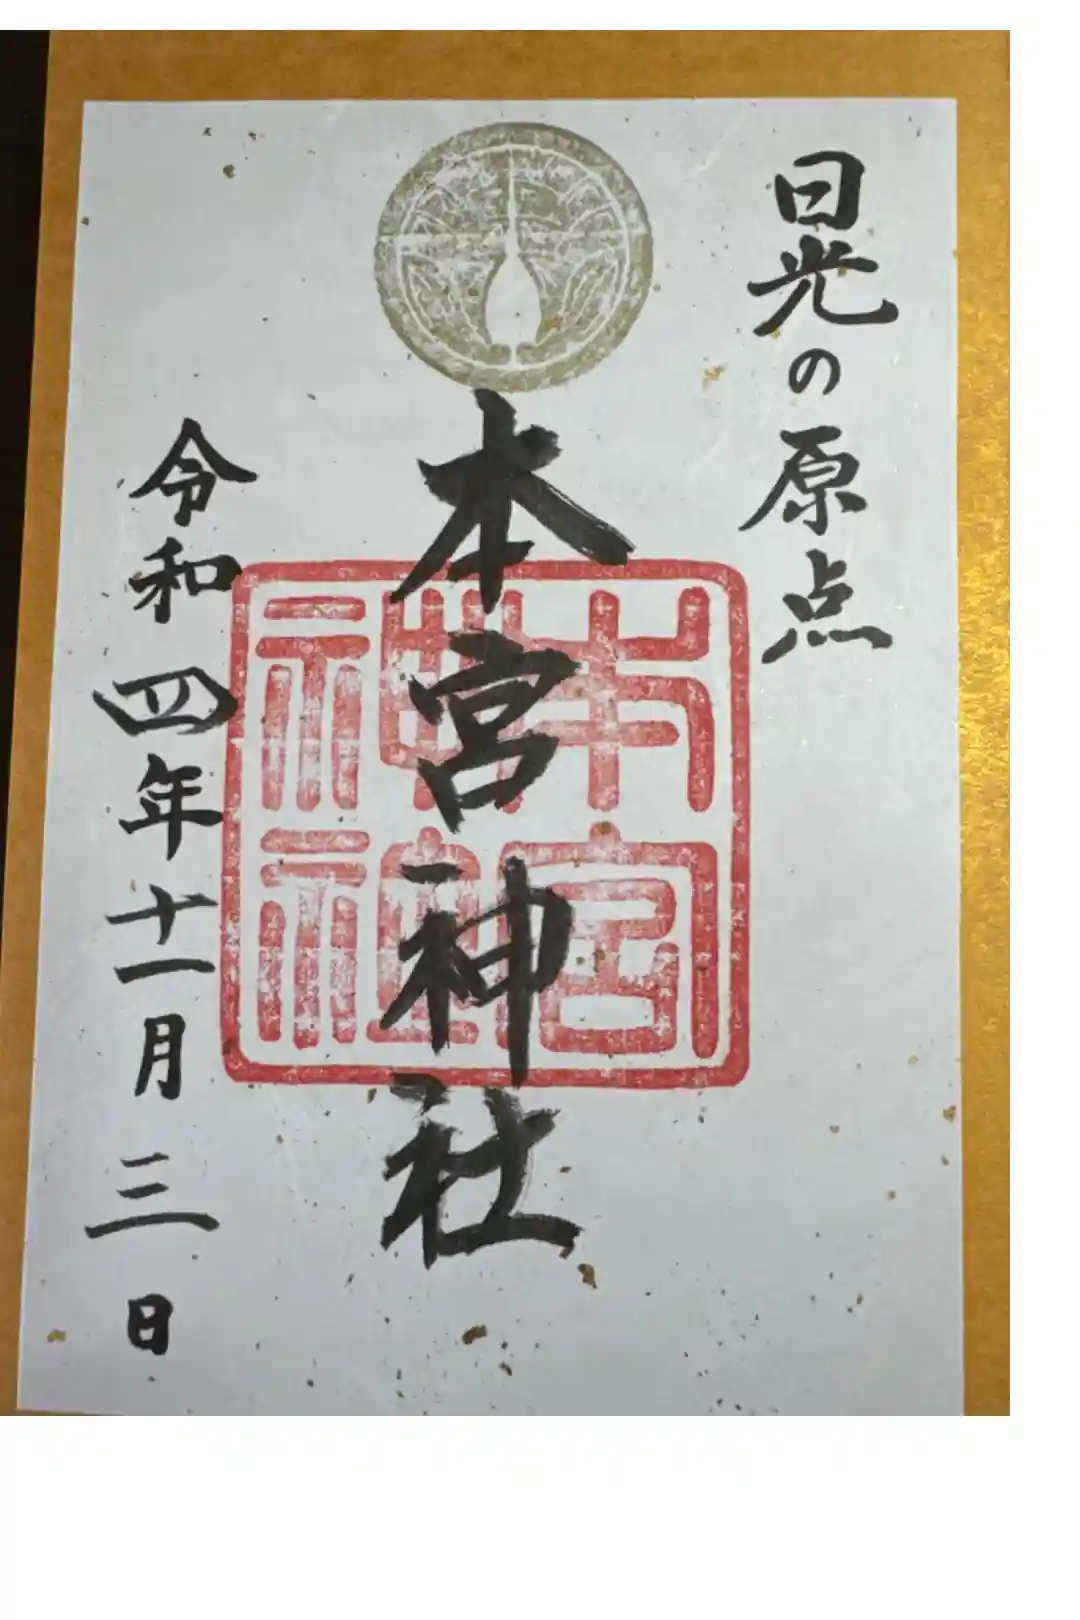 日光の原点
本宮神社
令和四年十一月三日